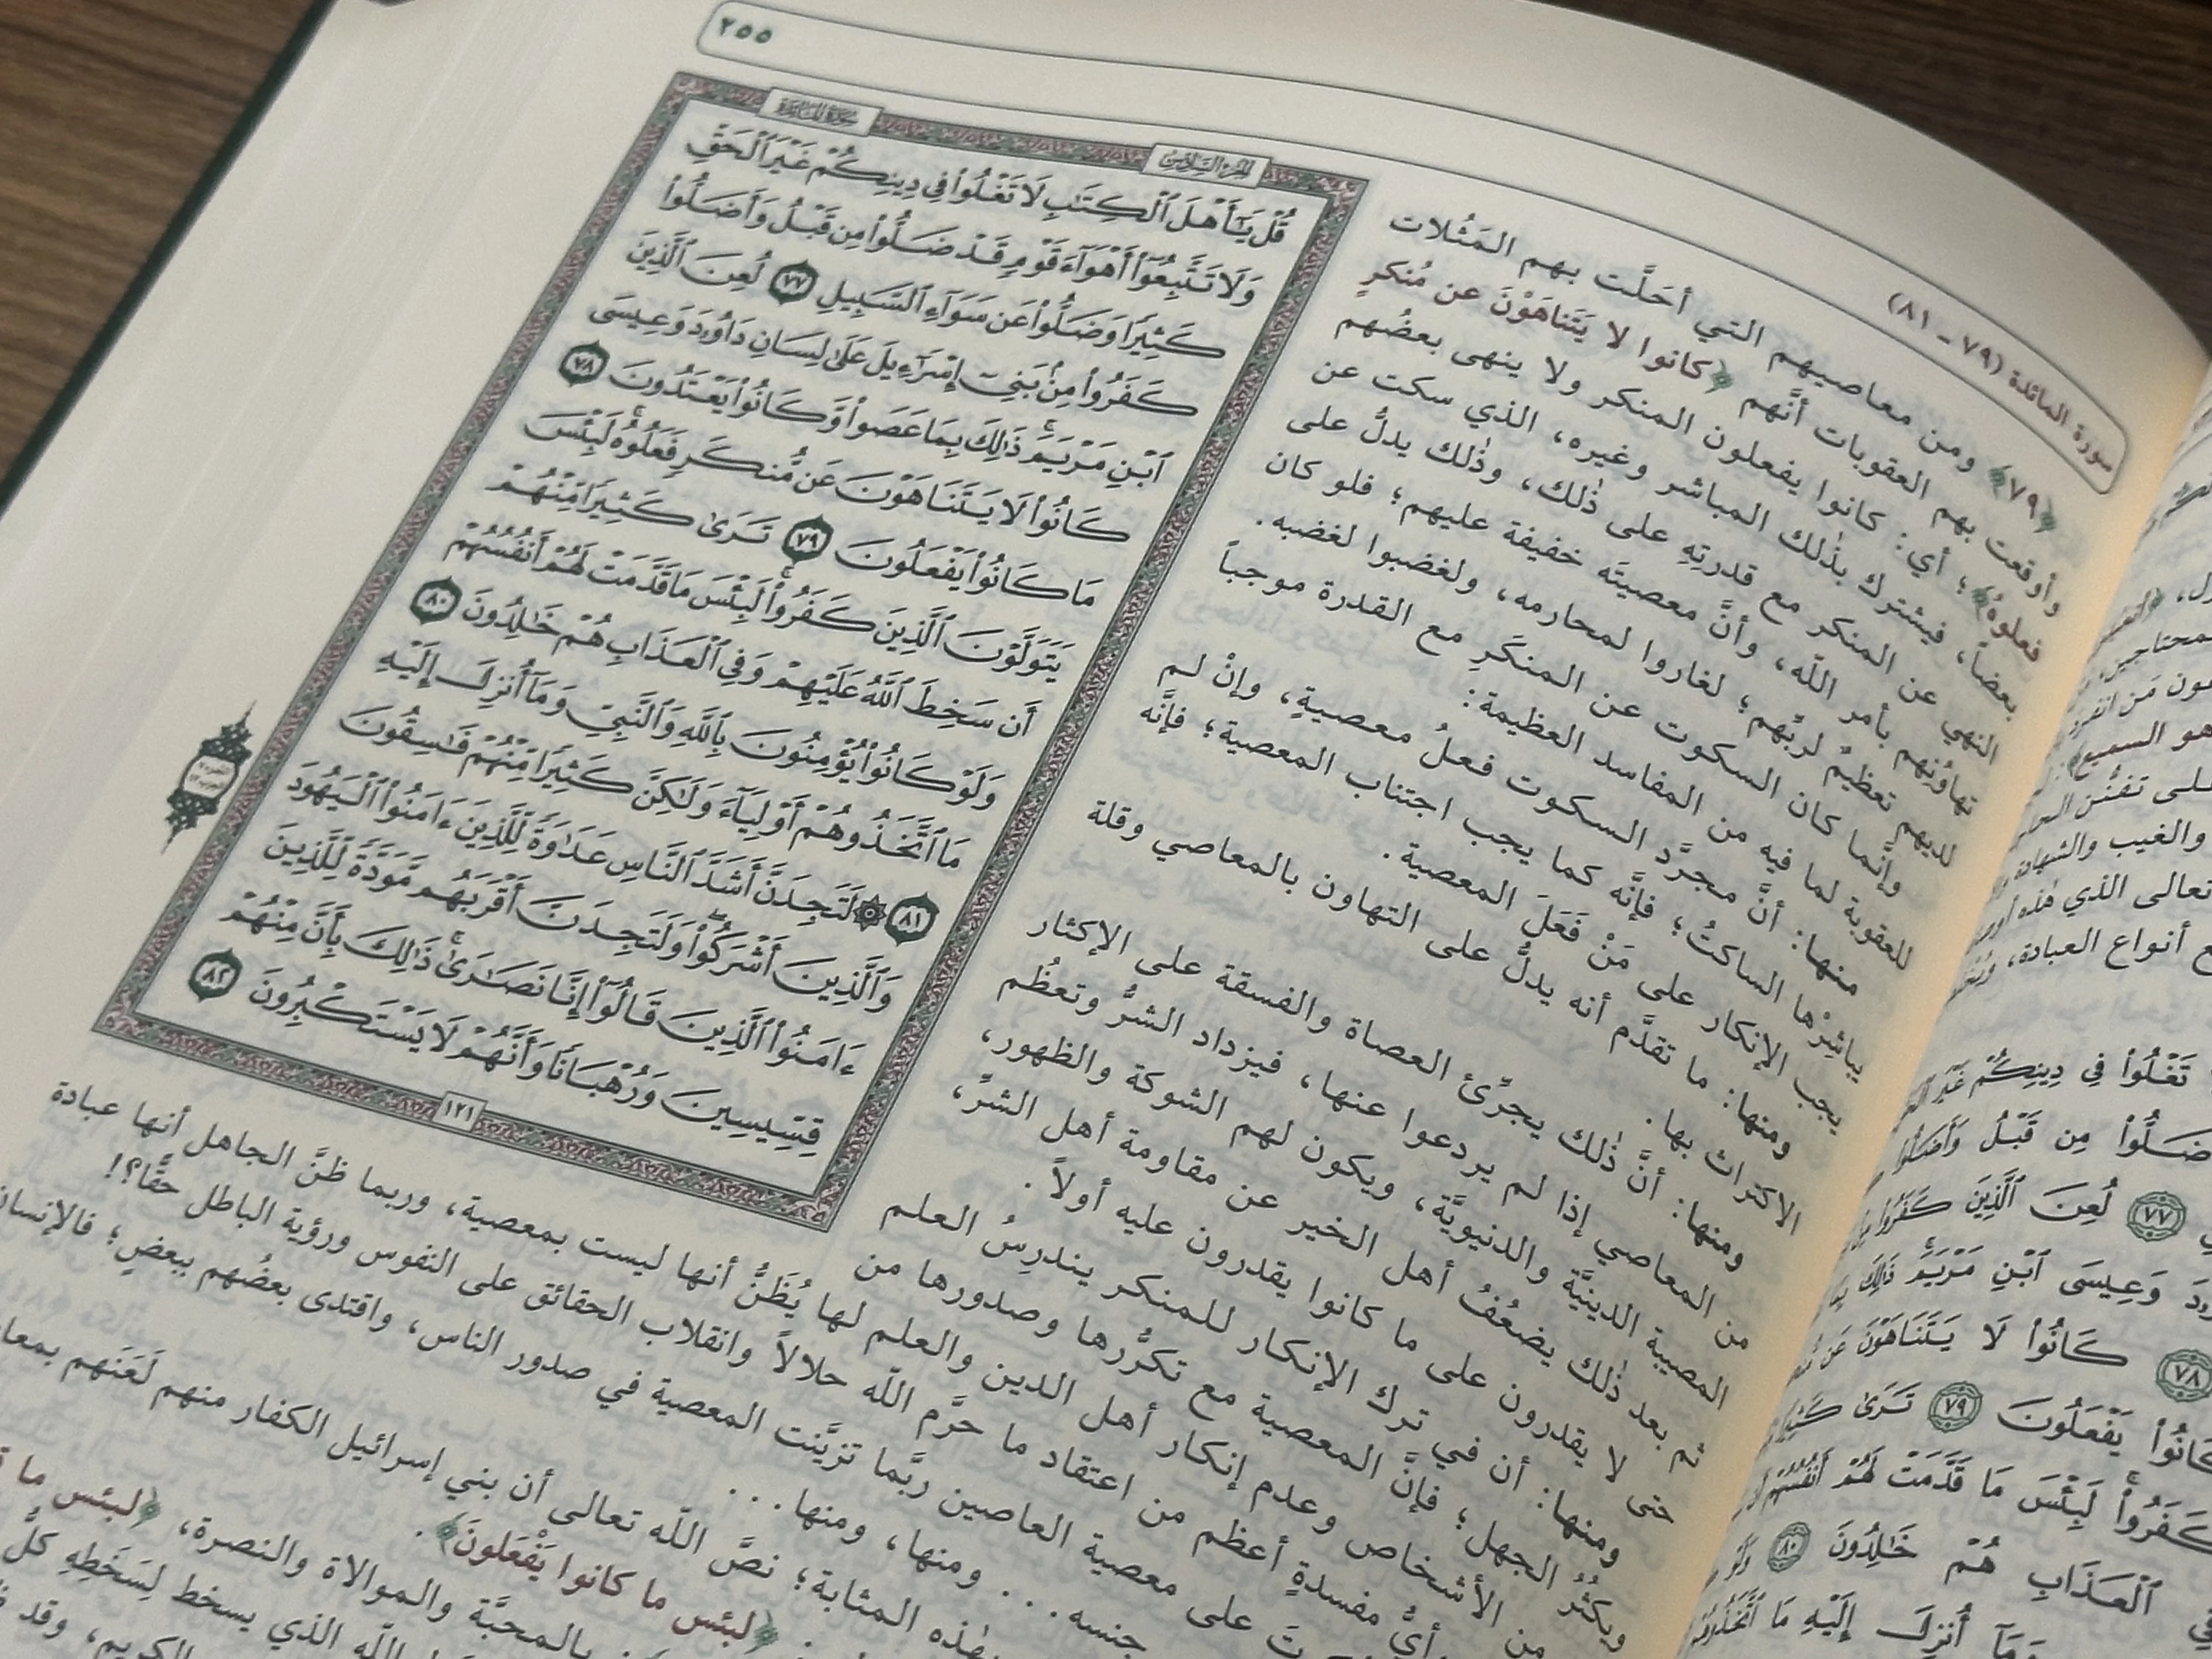 سورة المائدة (٧٩ ـ ٨١)
٢٥٥
﴿٧٩﴾ ومن معاصيهم التي أحَلَّت بهم المَثُلات
وأوقعت بهم العقوبات أنَّهم ﴿كانوا لا يَتَناهَوْنَ عن مُنكرٍ
فعلوهُ﴾؛ أي: كانوا يفعلون المنكر ولا ينهى بعضُهم
بعضاً، فيشترك بذٰلك المباشر وغيره، الذي سكت عن
النهي عن المنكر مع قدرتهِ على ذٰلك، وذٰلك يدلُّ على
تهاوُنِهم بأمر اللّه، وأنَّ معصيتَه خفيفة عليهم؛ فلو كان
لديهم تعظيمٌ لربِّهم؛ لغاروا لمحارمه، ولغضبوا لغضبه.
وإنَّما كان السكوت عن المنكَرِ مع القدرة موجباً
للعقوبة لما فيه من المفاسد العظيمة:
منها: أنَّ مجرَّد السكوت فعلُ معصيةٍ، وإنْ لم
يباشِرْها الساكتُ؛ فإنَّه كما يجب اجتناب المعصية؛ فإنَّه
يجب الإنكار على مَنْ فَعَلَ المعصية.
ومنها: ما تقدَّم أنه يدلُّ على التهاون بالمعاصي وقلة
الاكتراث بها.
ومنها: أنَّ ذٰلك يجرِّئ العصاة والفسقة على الإكثار
من المعاصي إذا لم يردعوا عنها، فيزداد الشرُّ وتعظُم
المصيبة الدينيَّة والدنيويَّة، ويكون لهم الشوكة والظهور،
ثم بعد ذٰلك يضعُفُ أهل الخير عن مقاومة أهل الشرِّ،
حتى لا يقدرون على ما كانوا يقدرون عليه أولاً.
ومنها: أن في ترك الإنكار للمنكر يندرِسُ العلم
ويكثُرُ الجهل؛ فإنَّ المعصية مع تكرُّرها وصدورها من
من الأشخاص وعدم إنكار أهل الدين والعلم لها يُظَنُّ أنها ليست بمعصية، وربما ظنَّ الجاهل أنها عبادة
أيُّ مفسدةٍ أعظم من اعتقاد ما حرَّم اللّه حلالاً وانقلاب الحقائق على النفوس ورؤية الباطل حقًّا؟!
على معصية العاصين ربَّما تزيَّنت المعصية في صدور الناس، واقتدى بعضُهم ببعضٍ؛ فالإنسان
جنسه... ومنها، ومنها...
بهٰذه المثابة؛ نصَّ اللّه تعالى أن بني إسرائيل الكفار منهم لَعَنَهم
﴿لبئس ما كانوا يَفْعَلونَ﴾.
بالمحبَّة والموالاة والنصرة، ﴿لبئس ما
اللّه الذي يسخط لِسَخَطِهِ كلُّ
الكريم، وقد
الجزء السادس
سورة المائدة
قُلْ يَٰٓأَهْلَ ٱلْكِتَٰبِ لَا تَغْلُوا۟ فِى دِينِكُمْ غَيْرَ ٱلْحَقِّ
وَلَا تَتَّبِعُوٓا۟ أَهْوَآءَ قَوْمٍ قَدْ ضَلُّوا۟ مِن قَبْلُ وَأَضَلُّوا۟
كَثِيرًا وَضَلُّوا۟ عَن سَوَآءِ ٱلسَّبِيلِ ٧٧ لُعِنَ ٱلَّذِينَ
كَفَرُوا۟ مِنۢ بَنِىٓ إِسْرَٰٓءِيلَ عَلَىٰ لِسَانِ دَاوُۥدَ وَعِيسَى
ٱبْنِ مَرْيَمَ ۚ ذَٰلِكَ بِمَا عَصَوا۟ وَّكَانُوا۟ يَعْتَدُونَ ٧٨
كَانُوا۟ لَا يَتَنَاهَوْنَ عَن مُّنكَرٍ فَعَلُوهُ ۚ لَبِئْسَ
مَا كَانُوا۟ يَفْعَلُونَ ٧٩ تَرَىٰ كَثِيرًا مِّنْهُمْ
يَتَوَلَّوْنَ ٱلَّذِينَ كَفَرُوا۟ ۚ لَبِئْسَ مَا قَدَّمَتْ لَهُمْ أَنفُسُهُمْ
أَن سَخِطَ ٱللَّهُ عَلَيْهِمْ وَفِى ٱلْعَذَابِ هُمْ خَٰلِدُونَ ٨٠
وَلَوْ كَانُوا۟ يُؤْمِنُونَ بِٱللَّهِ وَٱلنَّبِىِّ وَمَآ أُنزِلَ إِلَيْهِ
مَا ٱتَّخَذُوهُمْ أَوْلِيَآءَ وَلَٰكِنَّ كَثِيرًا مِّنْهُمْ فَٰسِقُونَ
٨١ ۞ لَتَجِدَنَّ أَشَدَّ ٱلنَّاسِ عَدَٰوَةً لِّلَّذِينَ ءَامَنُوا۟ ٱلْيَهُودَ
وَٱلَّذِينَ أَشْرَكُوا۟ ۖ وَلَتَجِدَنَّ أَقْرَبَهُم مَّوَدَّةً لِّلَّذِينَ
ءَامَنُوا۟ ٱلَّذِينَ قَالُوٓا۟ إِنَّا نَصَٰرَىٰ ۚ ذَٰلِكَ بِأَنَّ مِنْهُمْ
قِسِّيسِينَ وَرُهْبَانًا وَأَنَّهُمْ لَا يَسْتَكْبِرُونَ ٨٢
١٢١
هو السميع
والغيب والشهادة
تعالى الذي هٰذه
أنواع العبادة،
تَغْلُوا۟ فِى دِينِكُمْ غَيْرَ
مِن قَبْلُ وَأَضَلُّوا۟
٧٧ لُعِنَ ٱلَّذِينَ كَفَرُوا۟
وَعِيسَى ٱبْنِ مَرْيَمَ ۚ ذَٰلِكَ
٧٨ كَانُوا۟ لَا يَتَنَاهَوْنَ عَن
يَفْعَلُونَ ٧٩ تَرَىٰ
كَفَرُوا۟ ۚ لَبِئْسَ مَا قَدَّمَتْ لَهُمْ أَنفُسُهُمْ
ٱلْعَذَابِ هُمْ خَٰلِدُونَ ٨٠ وَلَوْ
وَمَآ أُنزِلَ إِلَيْهِ مَا ٱتَّخَذُوهُمْ